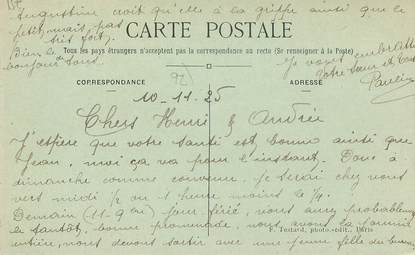 Augustine croit qu'elle a la grippe ainsi que le
petit, mais pas
très fort.
Bien le
bonjour à tous.
CARTE POSTALE
Tous les pays étrangers n'acceptent pas la correspondance au recto (Se renseigner à la Poste)
CORRESPONDANCE
ADRESSE
Je vous embrasse
Votre sœur et
10-11-25
Chers Henri & Andrée
J'espère que votre santé est bonne ainsi que
Jean, moi ça va pour l'instant. Donc à
dimanche comme convenu, je serai chez vous
vers midi 1/2 ou 1 heure moins le 1/4.
Demain (11-9bre) jour férié, vous aurez probablement
le tantôt, bonne promenade, nous avons la journée
entière, nous devons sortir avec une jeune fille du bureau
F. Testard, photo.-édit., Paris